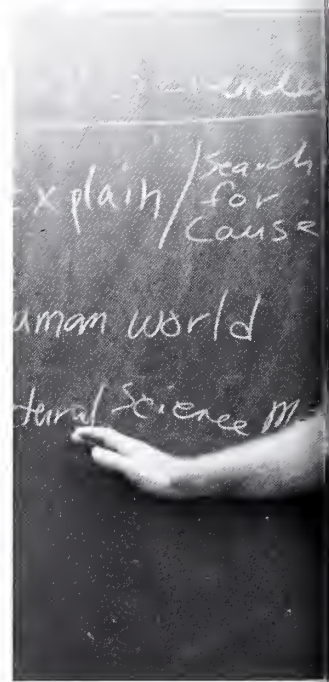 xplain / Search
for
cause
uman world
tural Science M